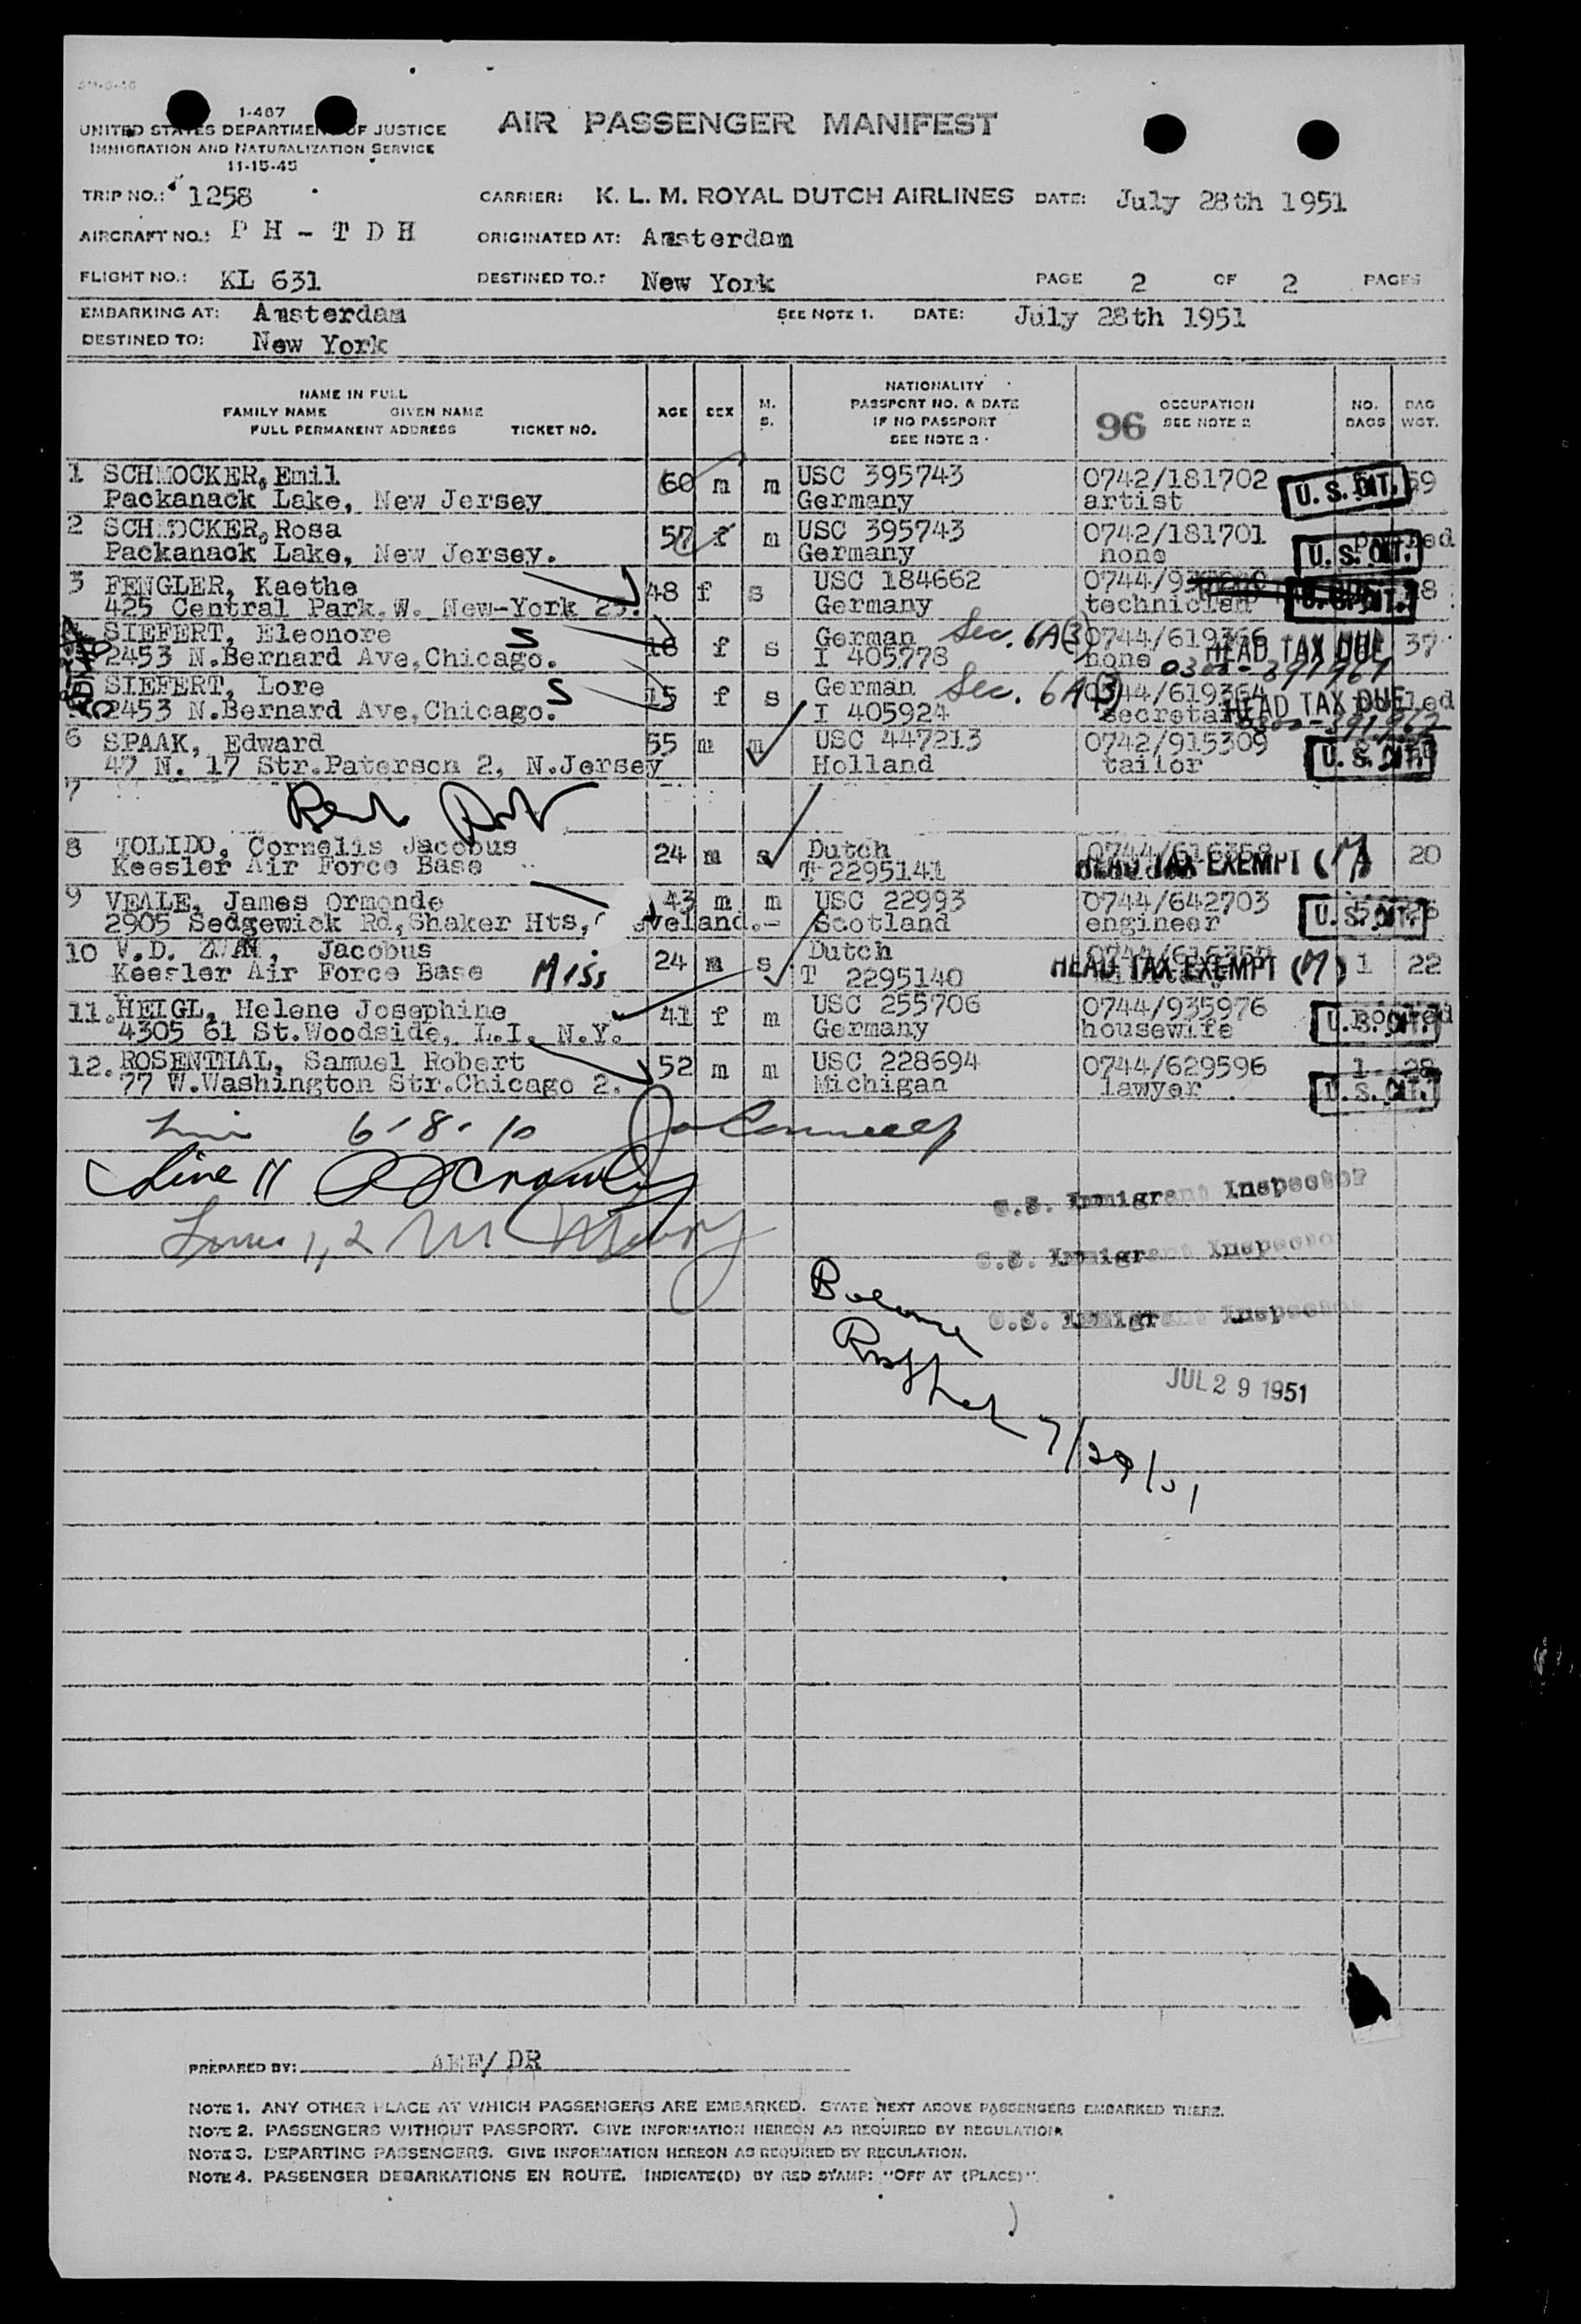 1-467
UNITED STATES DEPARTMENT OF JUSTICE
IMMIGRATION AND NATURALIZATION SERVICE
11-15-45
AIR PASSENGER MANIFEST
TRIP NO.: 1258 CARRIER: K. L. M. ROYAL DUTCH AIRLINES DATE: July 28th 1951
AIRCRAFT NO.: P H - T D H ORIGINATED AT: Amsterdam
FLIGHT NO.: KL 631 DESTINED TO.: New York PAGE 2 OF 2 PAGES
EMBARKING AT: Amsterdam SEE NOTE 1. DATE: July 28th 1951
DESTINED TO: New York
NAME IN FULL
FAMILY NAME GIVEN NAME
FULL PERMANENT ADDRESS TICKET NO.
AGE SEX M. S.
NATIONALITY
PASSPORT NO. & DATE
IF NO PASSPORT
SEE NOTE 2
96 OCCUPATION
SEE NOTE 2
NO. BAGS
BAG WGT.
1 SCHMOCKER, Emil 60 m m USC 395743 0742/181702 U.S. CIT. 59
Packanack Lake, New Jersey Germany artist
2 SCHMOCKER, Rosa 57 f m USC 395743 0742/181701 U.S. CIT.
Packanack Lake, New Jersey. Germany none
3 FENGLER, Kaethe 48 f s USC 184662 U.S. CIT.
425 Central Park, W. New-York 25. Germany technician
SIEFERT, Eleonore S 18 f s German Sec. 6A(3) 0744/619366 HEAD TAX DUE 37
2453 N.Bernard Ave,Chicago. I 405778 none 0300-391961
SIEFERT, Lore S 15 f s German Sec. 6A(3) 0744/619364 HEAD TAX DUE
2453 N.Bernard Ave,Chicago. I 405924 secretary
6 SPAAK, Edward 55 m m USC 447213 0742/915309 U.S. CIT.
47 N. 17 Str.Paterson 2, N.Jersey Holland tailor
7
8 TOLIDO, Cornelis Jacobus 24 m s Dutch HEAD TAX EXEMPT (M) 20
Keesler Air Force Base T 2295141
9 VEALE, James Ormonde 43 m m USC 22993 0744/642703 U.S. CIT.
2905 Sedgewick Rd, Shaker Hts, eveland.- Scotland engineer
10 V.D. ZWAN, Jacobus 24 m s Dutch HEAD TAX EXEMPT (M) 1 22
Keesler Air Force Base Miss T 2295140
11. HEIGL, Helene Josephine 41 f m USC 255706 0744/935976 U.S. CIT.
4305 61 St.Woodside, L.I. N.Y. Germany housewife
12. ROSENTHAL, Samuel Robert 52 m m USC 228694 0744/629596 1 28
77 W.Washington Str.Chicago 2. Michigan lawyer U.S. CIT.
6-8-10
Line 11
Lines 1,2
U.S. Immigrant Inspector
U.S. Immigrant Inspector
U.S. Immigrant Inspector
JUL 29 1951
7/29/51
PREPARED BY: AEF/DR
NOTE 1. ANY OTHER PLACE AT WHICH PASSENGERS ARE EMBARKED. STATE NEXT ABOVE PASSENGERS EMBARKED THERE.
NOTE 2. PASSENGERS WITHOUT PASSPORT. GIVE INFORMATION HEREON AS REQUIRED BY REGULATION.
NOTE 3. DEPARTING PASSENGERS. GIVE INFORMATION HEREON AS REQUIRED BY REGULATION.
NOTE 4. PASSENGER DEBARKATIONS EN ROUTE. INDICATE(D) BY RED STAMP: "OFF AT (PLACE)".